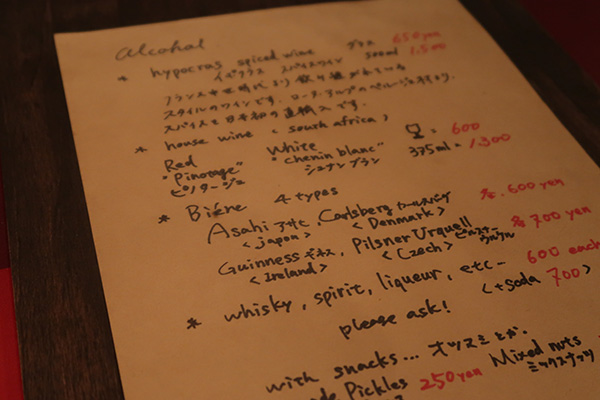 alcohol
* hypocras spiced wine グラス 650yen
イポクラス スパイスワイン 500ml 1,500
フランス中世時代より飲み継がれている
スタイルのワインです。
スパイスを日本初の直輸入です。
* house wine <south africa>
Red White = 600
"Pinotage" "Chenin blanc" 375ml = 1,300
ピノタージュ シュナンブラン
* Biére 4 types
Asahi アサヒ, Carlsberg カールスバーグ 各. 600 yen
<japan> <Denmark>
Guinness ギネス, Pilsner Urquell ピルスナーウルケル 各 700 yen
<Ireland> <Czech>
* whisky, spirit, liqueur, etc- 600 each
please ask! <+soda 700>
with snacks... オツマミとか.
Pickles 250yen Mixed nuts
ミックスナッツ